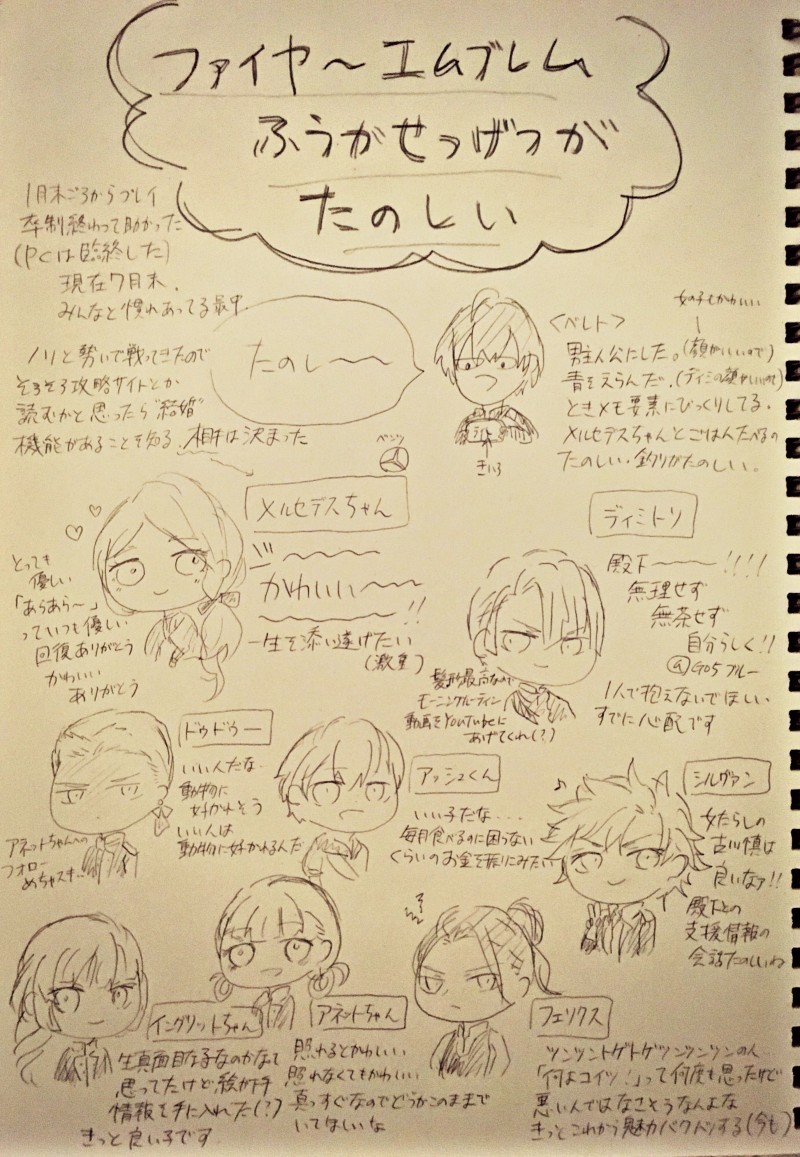 ファイヤ〜エムブレム
ふうかせつげつが
たのしい
1月末ごろからプレイ
卒制終わって助かった
(PCは臨終した)
現在7月末.
みんなと慣れあってる最中.
ノリと勢いで戦ってきたので
そろそろ攻略サイトとか
読むかと思ったら"結婚"
機能があることを知る. 相手は決まった
たのし〜〜
女の子もかわいい
<ベレト>
男主人公にした。(顔がいいので)
青をえらんだ.(ディミの顔がいいので)
ときメモ要素にびっくりしてる.
メルセデスちゃんとごはんたべるの
たのしい・釣りがたのしい。
きいろ
ベンツ
メルセデスちゃん
かわいい〜〜
〜〜!!
一生を添い遂げたい
(激重)
とっても
優しい
「あらあら〜」
っていつも優しい
回復ありがとう
かわいい
ありがとう
ディミトリ
殿下〜〜〜!!!!
無理せず
無茶せず
自分らしく!!
GO5ブルー
1人で抱えないでほしい
すでに心配です
髪形最高なので
モーニングルーティン
動画をYouTubeに
あげてくれ(?)
ドゥドゥー
いい人だな.
動物に
好かれそう
いい人は
動物に好かれるんだ
アネットちゃんへの
フォロー
めちゃスキ..
アッシュくん
いい子だな...
毎月食べるのに困らない
くらいのお金を振りこみたい
シルヴァン
女たらしの
古川慎は
良いなァ!!
殿下との
支援情報の
会話たのしいわ
イングリットちゃん
生真面目な子なのかなって
思ってたけど絵が下手
情報を手に入れた(?)
きっと良い子です
アネットちゃん
照れるとかわいい
照れなくてもかわいい
真っすぐなのでどうかこのままで
いてほしいな
フェリクス
ツンツントゲトゲツンツンツンの人.
「何よコイツ!」って何度も思ったけど
悪い人ではなさそうなんよな
きっとこれから魅力バクハツする(今も)